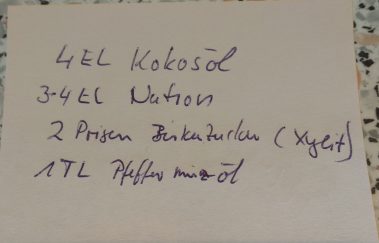 4 EL Kokosöl
3-4 EL Natron
2 Prisen Birkenzucker (Xylit)
1 TL Pfefferminzöl